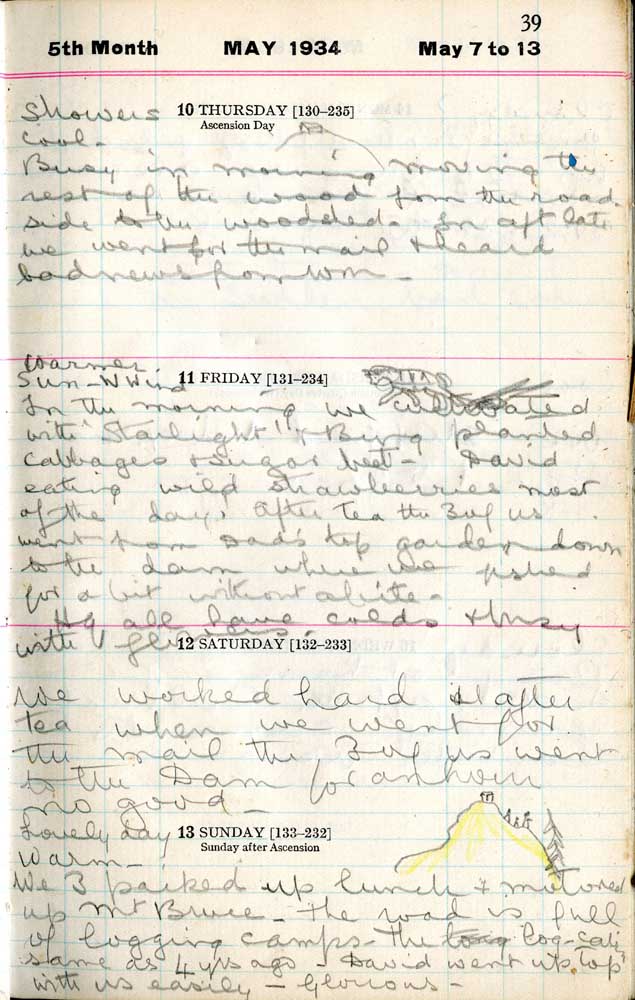 39
5th Month MAY 1934 May 7 to 13
Showers 10 THURSDAY [130–235]
Ascension Day
cool.
Busy in morning moving the
rest of the wood from the road
side to the woodshed. In aft late
we went for the mail & heard
bad news from Wm —
Warmer.
Sun - W Wind 11 FRIDAY [131–234]
In the morning we cultivated
with "Starlight" & planted
cabbages & sugar beet — David
eating wild strawberries most
of the day. After tea the 3 of us
went from Dad's top garden down
to the dam where we fished
for a bit without a bite.
all have colds & busy
with
12 SATURDAY [132–233]
We worked hard till after
tea when we went for
the mail the 3 of us went
to the Dam for an hour
no good —
Lovely day 13 SUNDAY [133–232]
Sunday after Ascension
Warm —
We 3 packed up lunch & motored
up Mt Bruce — the road is full
of logging camps — the log-cabin
same as 4 yrs ago — David went up to top
with us easily — Glorious —